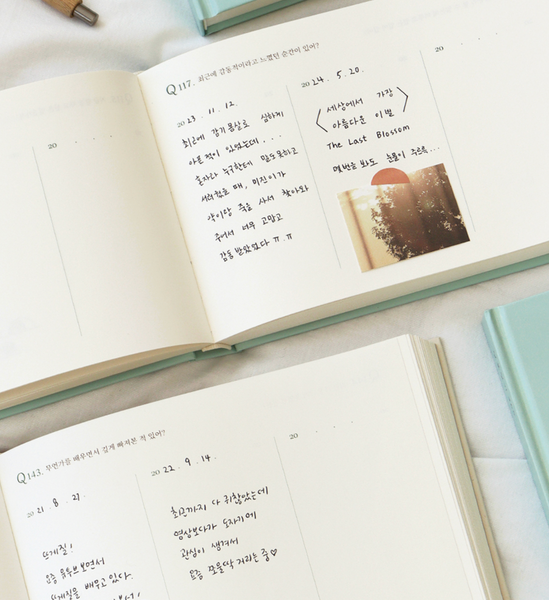 20 . . .
Q117. 최근에 감동적이라고 느꼈던 순간이 있어?
2023. 11. 12.
최근에 감기몸살로 심하게
아픈 적이 있었는데...
혼자라 누구한테 말도 못하고
서러웠을 때, 미진이가
약이랑 죽을 사서 찾아와
주어서 너무 고맙고
감동받았었다 ㅠ.ㅠ
2024. 5. 20.
<세상에서 가장
아름다운 이별>
The Last Blossom
몇번을 봐도 눈물이 주르륵...
20 . . .
Q143. 무언가를 배우면서 깊게 빠져본 적 있어?
2021. 8. 21.
뜨개질!
요즘 유튜브 보면서
뜨개질을 배우고 있다.
2022. 9. 14.
최근까지 다 귀찮았는데
영상보다가 도자기에
관심이 생겨서
요즘 쪼물딱 거리는 중♡
20 . . .